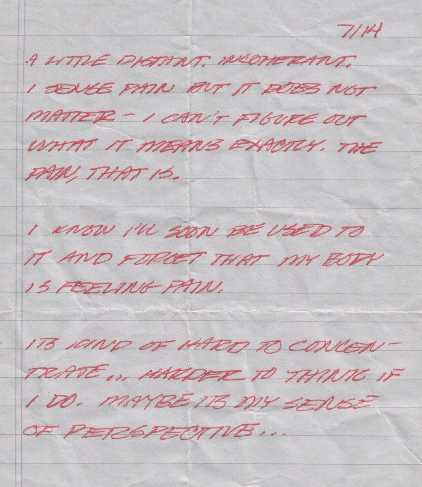 7/14
A LITTLE DISTANT. INCOHERANT.
I SENSE PAIN BUT IT DOES NOT
MATTER - I CAN'T FIGURE OUT
WHAT IT MEANS EXACTLY. THE
PAIN, THAT IS.
I KNOW I'LL SOON BE USED TO
IT AND FORGET THAT MY BODY
IS FEELING PAIN.
ITS KIND OF HARD TO CONCEN-
TRATE... HARDER TO THINK IF
I DO. MAYBE ITS MY SENSE
OF PERSPECTIVE...